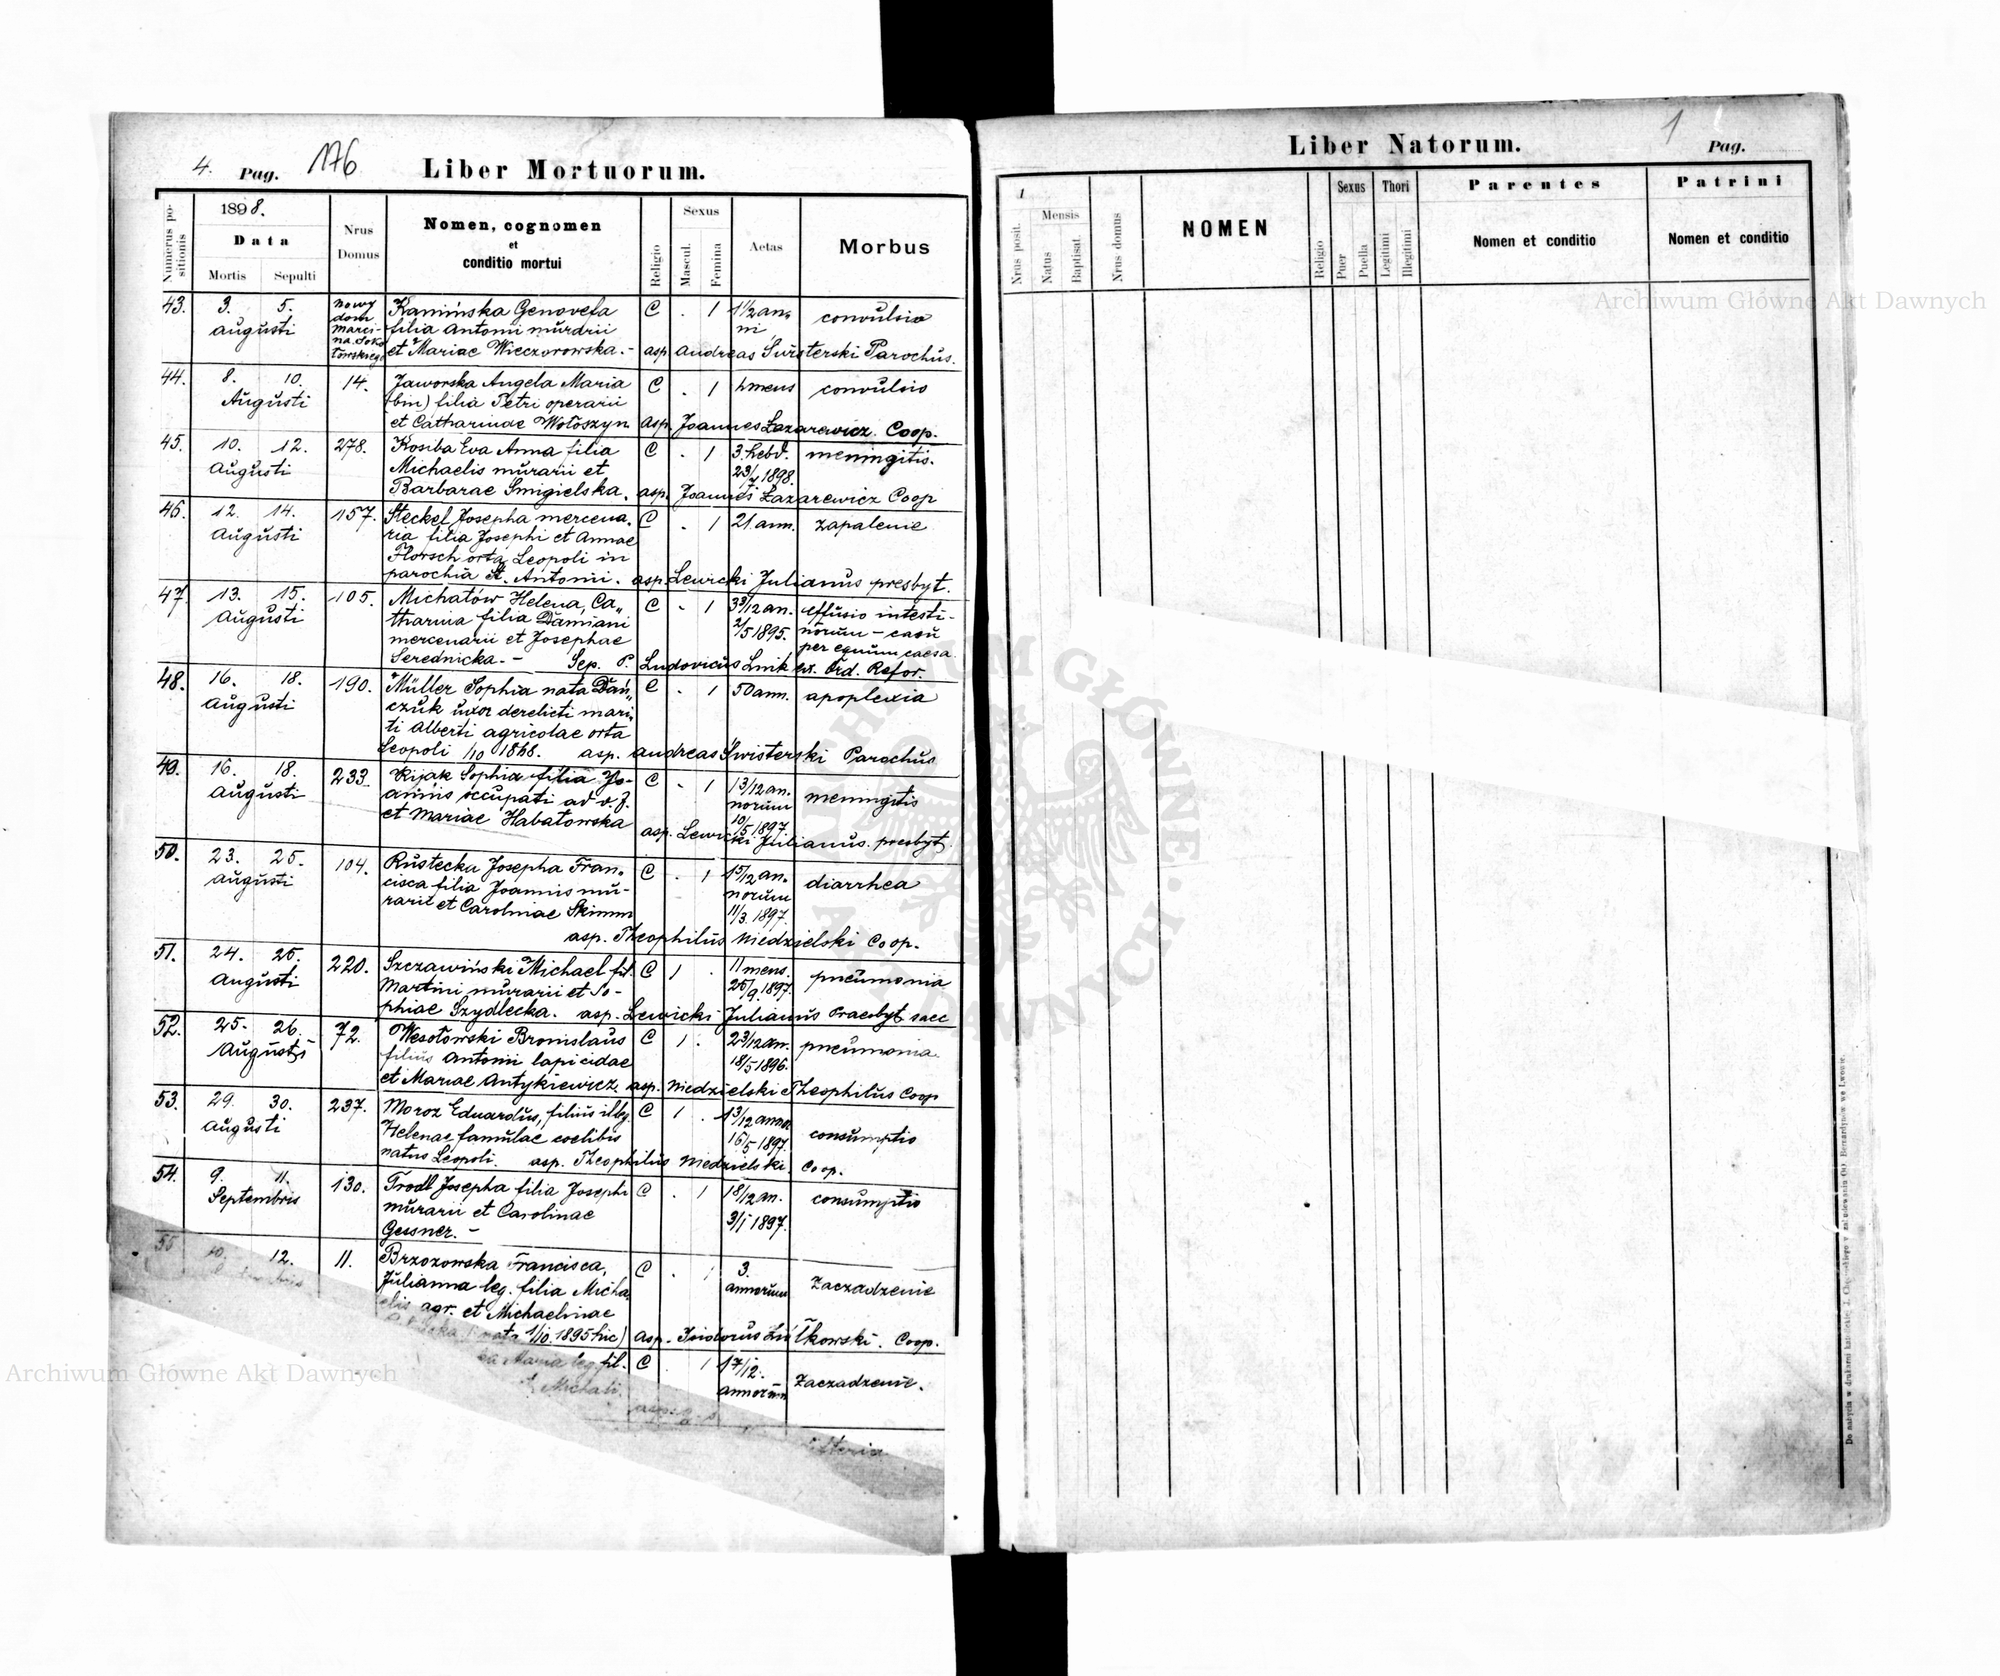 4. Pag. 176 Liber Mortuorum.
Numerus positionis
1898.
Data
Mortis Sepulti
Nrus Domus
Nomen, cognomen
et
conditio mortui
Religio
Sexus
Mascul. Femina
Aetas
Morbus
43. 3. 5. Nowy Kamińska Genovefa C . 1 1 1/2 an-
augusti dom filia Antoni murarii ni convulsio
marci- et Mariae Wieczorowska. - asp. Andreas Świsterski Parochus.
na Soko
łowskiego
44. 8. 10. 14. Jaworska Angela Maria C . 1 4 mens convulsio
Augusti (bin) filia Petri operarii
et Catharinae Wołoszyn asp. Joannes Łazarewicz. Coop.
45. 10. 12. 278. Kosiba Eva Anna filia C . 1 3. hebd. meningitis.
augusti Michaelis murarii et 23/7 1898.
Barbarae Smigielska. asp. Joannes Łazarewicz Coop
46. 12. 14. 157. Steckel Josepha mercena- C . 1 21 ann. zapalenie
augusti ria filia Josephi et Annae
Florsch orta Leopoli in
parochia St. Antonii. asp. Lewicki Julianus presbyt.
47. 13. 15. 105. Michałów Helena, Ca- C . 1 3 3/12 an. effusio intesti-
augusti tharina filia Damiani 2/5 1895. norum - casu
mercenarii et Josephae per equum caesa
Serednicka. - Sep. P. Ludovicus Lnik ex. Ord. Refor.
48. 16. 18. 190. Müller Sophia nata Dań- C . 1 50 ann. apoplexia
augusti czuk uxor derelicti mari-
ti Alberti agricolae orta
Leopoli 1/10 1848. asp. Andreas Świsterski Parochus
49. 16. 18. 233. Kijak Sophia filia Jo- C . 1 1 3/12 an. meningitis
augusti annis occupati ad v. f. norum
et Mariae Habatowska 10/5 1897.
asp. Lewicki Julianus. presbyt.
50. 23. 25. 104. Rustecka Josepha Fran- C . 1 1 5/12 an- diarrhea
augusti cisca filia Joannis mu- norum
rarii et Carolniae Skimm 11/3. 1897.
asp. Theophilus Niedzielski Coop.
51. 24. 26. 220. Szczawiński Michael fil. C 1 . 11 mens. pneumonia
augusti Martini murarii et So- 26/9. 1897.
phiae Szydlecka. asp. Lewicki Julianus Praesbyt saec
52. 25. 26. 72. Wesołowski Bronislaus C 1 . 2 3/12 an. pneumonia.
Augusti filius Antonii lapicidae 18/5 1896.
et Mariae Antykiewicz. asp. Niedzielski Theophilus Coop
53. 29. 30. 237. Moroz Eduardus, filius illeg. C 1 . 1 3/12 annor consumptio
augusti Helenae famulae coelibis 16/5 1897.
natus Leopoli. asp. Theophilus Niedzielski Coop.
54. 9. 11. 130. Trodl Josepha filia Josephi C . 1 1 8/12 an. consumptio
Septembris murarii et Carolinae 3/1 1897.
Gessner. -
55 10. 12. 11. Brzozowska Francisca, C . 1 3. zaczadzenie
Julianna leg. filia Micha- annorum
elis agr. et Michaelinae
nata 1/10. 1895 hic) asp. Isidorus Ziółkowski. Coop.
Maria leg. fil. C . 1 1 7/12. zaczadzenie.
Michali. annorum
Liber Natorum. 1 Pag.
1
Nrus posit.
Mensis
Natus Baptisat.
Nrus domus
NOMEN
Religio
Sexus
Puer Puella
Thori
Legitimi Illegitimi
Parentes
Nomen et conditio
Patrini
Nomen et conditio
Archiwum Główne Akt Dawnych
Archiwum Główne Akt Dawnych
ARCHIWUM GŁÓWNE AKT DAWNYCH